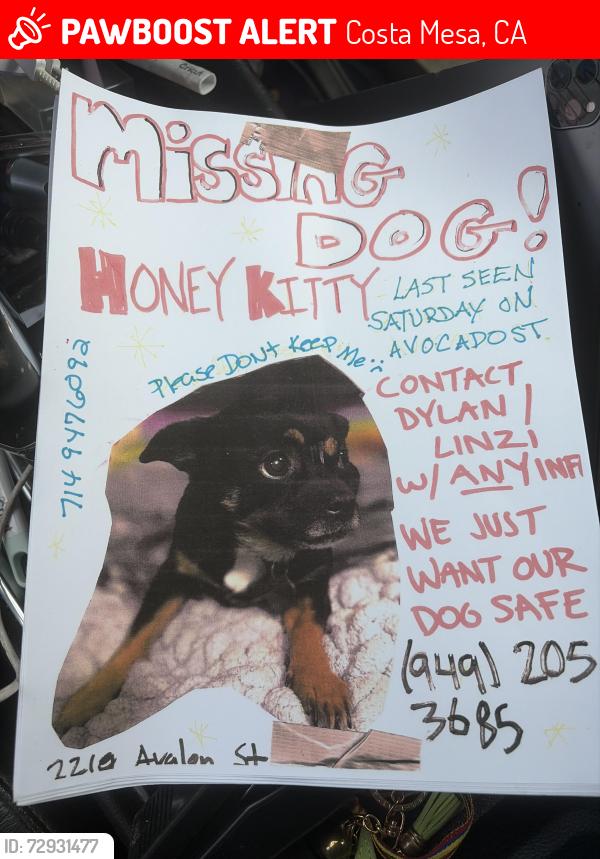 PAWBOOST ALERT Costa Mesa, CA
Missing
DOG!
HONEY KITTY
LAST SEEN
SATURDAY ON
AVOCADO ST.
Please Don't Keep Me
714 9476092
CONTACT
DYLAN /
LINZI
W/ ANY INFO
WE JUST
WANT OUR
DOG SAFE
(949) 205
3685
Avalon St
ID: 72931477